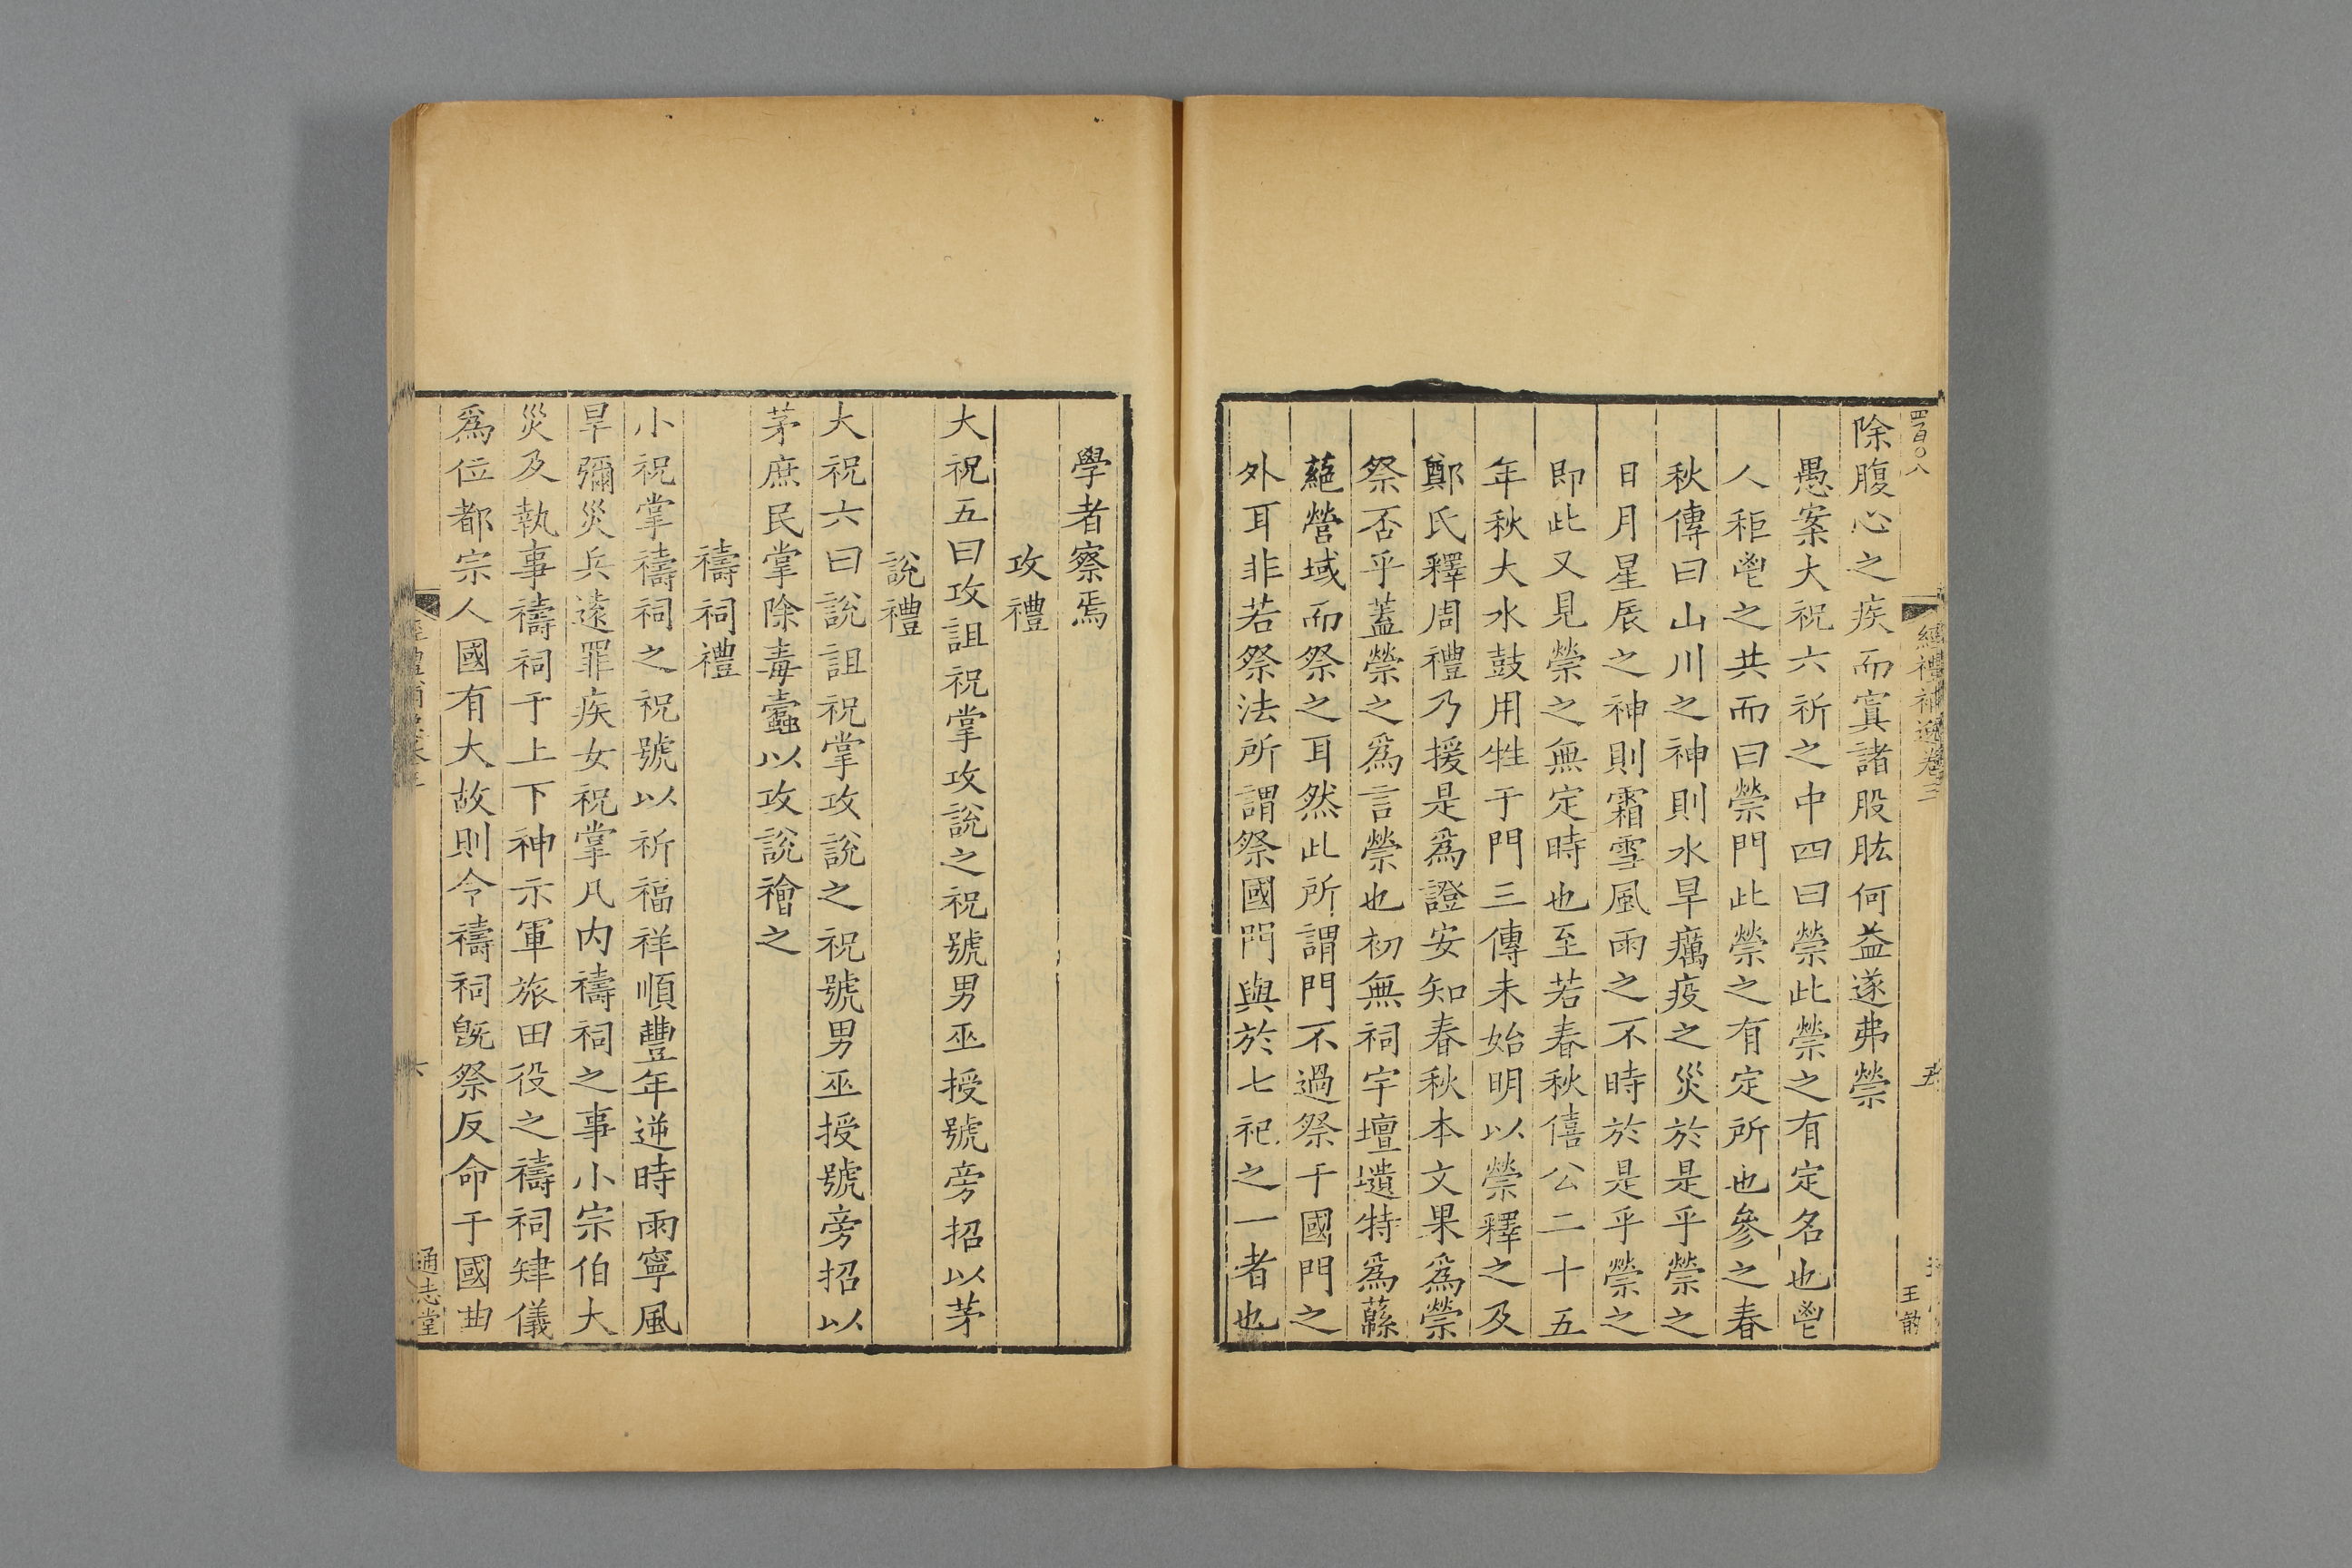 四百〇八
經禮補逸卷三
五
王
除腹心之疾而寘諸股肱何益遂弗禜
愚案大祝六祈之中四曰禜此禜之有定名也鬯
人秬鬯之共而曰禜門此禜之有定所也參之春
秋傳曰山川之神則水旱癘疫之災於是乎禜之
日月星辰之神則霜雪風雨之不時於是乎禜之
即此又見禜之無定時也至若春秋僖公二十五
年秋大水鼓用牲于門三傳未始明以禜釋之及
鄭氏釋周禮乃援是爲證安知春秋本文果爲禜
祭否乎蓋禜之爲言禜也初無祠宇壇壝特爲蕝
蕝營域而祭之耳然此所謂門不過祭于國門之
外耳非若祭法所謂祭國門與於七祀之一者也
學者察焉
攻禮
大祝五曰攻詛祝掌攻說之祝號男巫授號旁招以茅
說禮
大祝六曰說詛祝掌攻說之祝號男巫授號旁招以
茅庶民掌除毒蠱以攻說禬之
禱祠禮
小祝掌禱祠之祝號以祈福祥順豐年逆時雨寧風
旱彌災兵遠罪疾女祝掌凡内禱祠之事小宗伯大
災及執事禱祠于上下神示軍旅田役之禱祠肄儀
爲位都宗人國有大故則令禱祠旣祭反命于國曲
經禮補逸卷三
六
通志堂